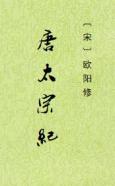 〔宋〕欧阳修
唐太宗紀